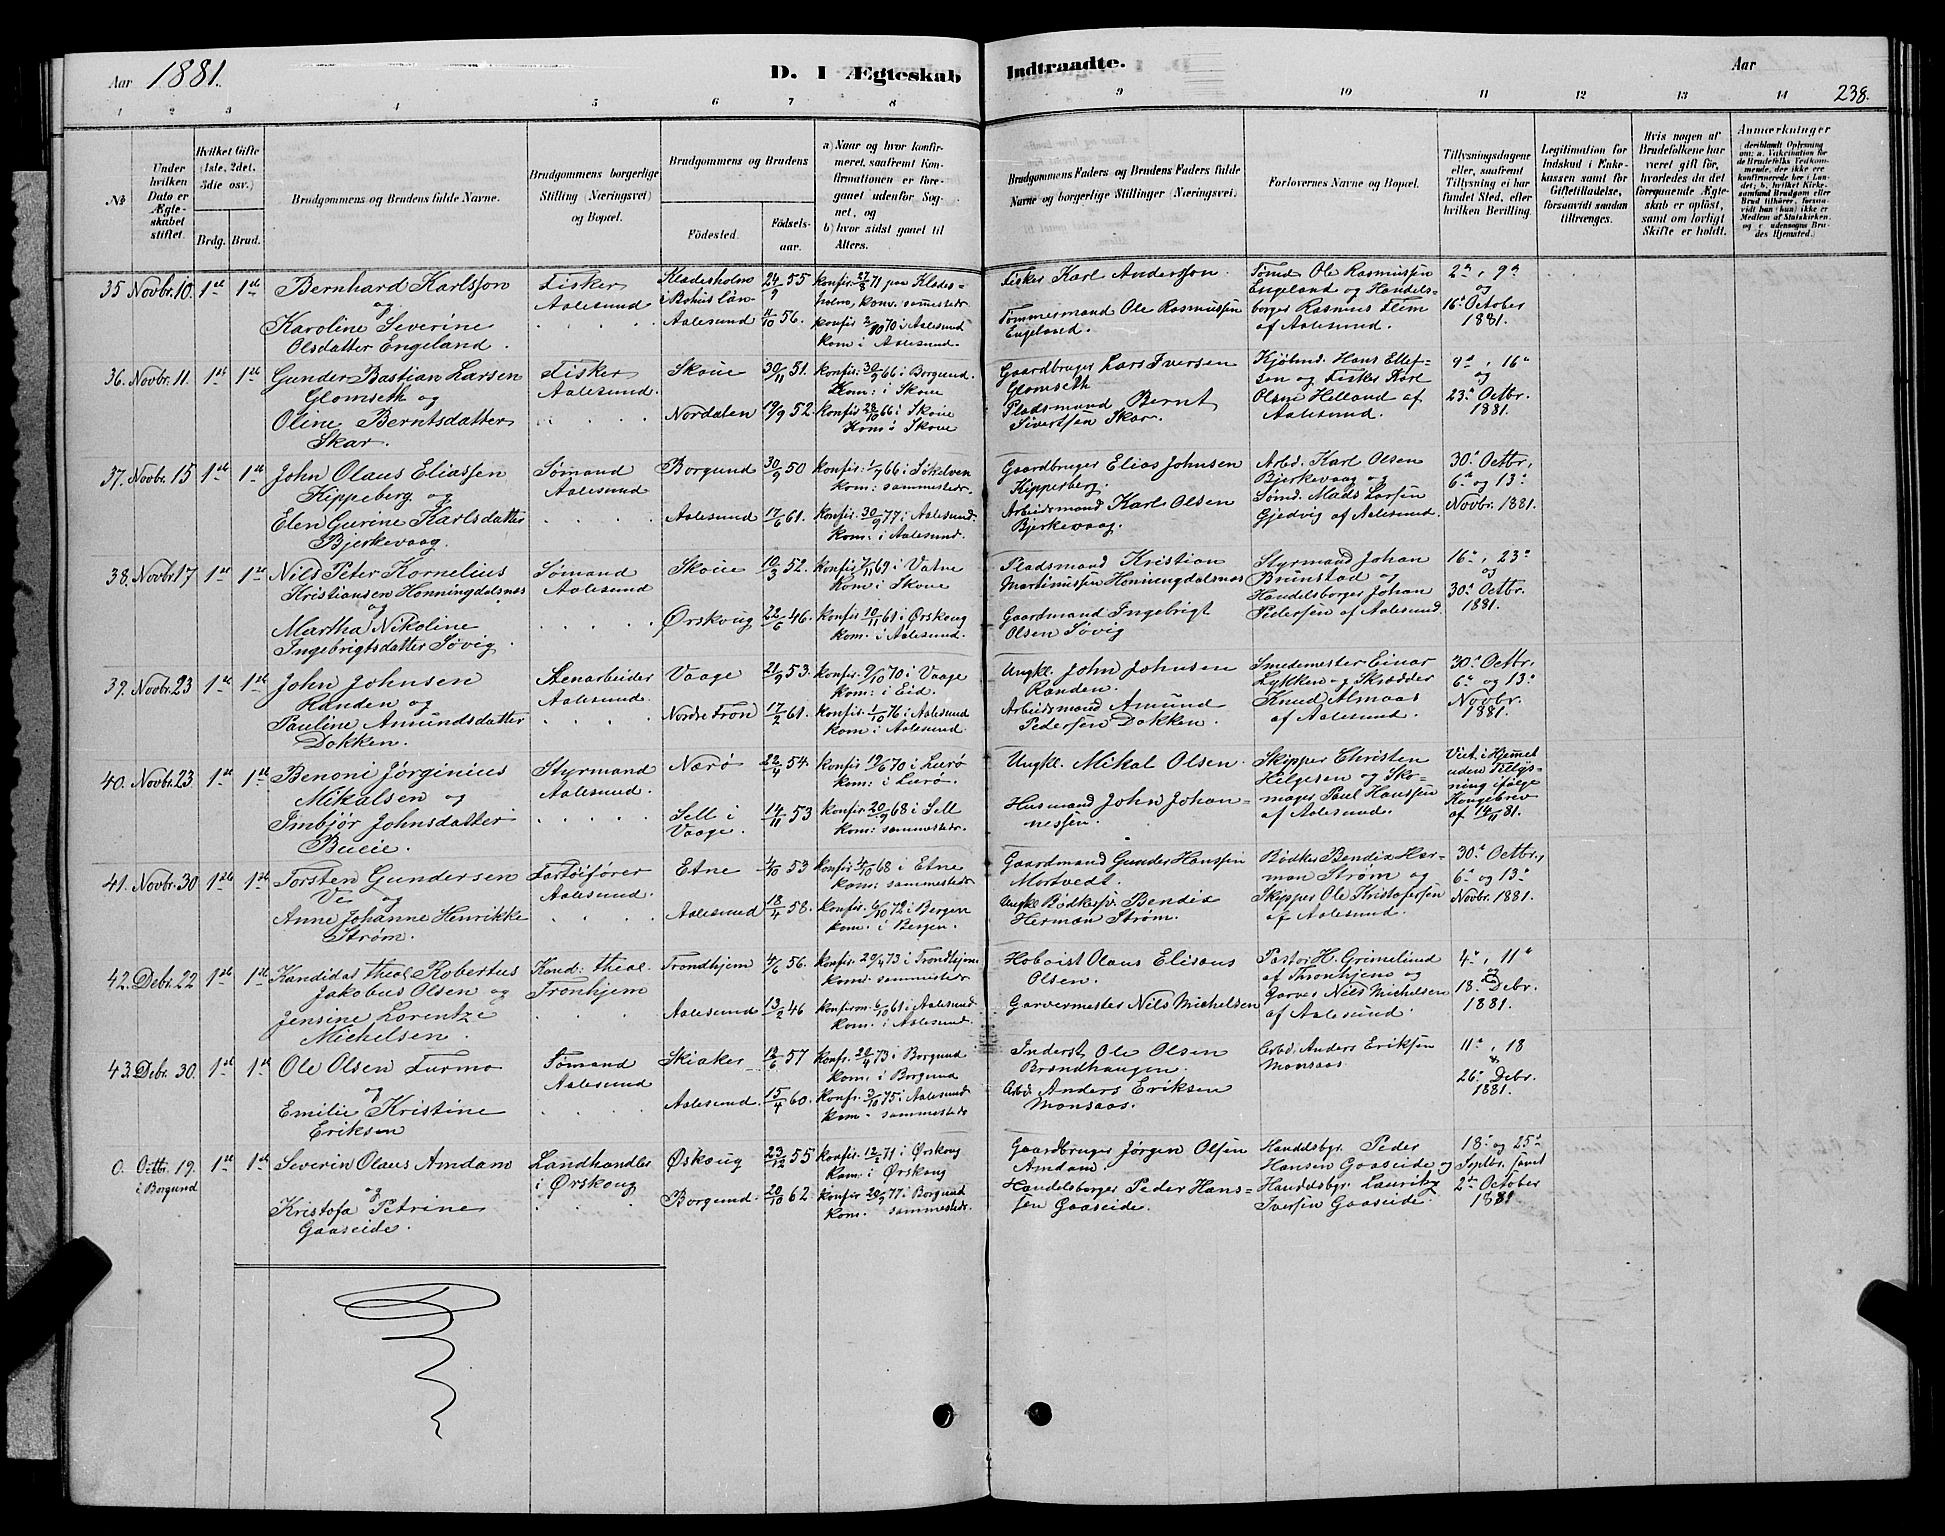 Aar 1881.
D. I Ægteskab Indtraadte.
Aar
238.
1 2 3 4 5 6 7 8 9 10 11 12 13 14
No
Under hvilken Dato er Ægteskabet stiftet.
Hvilket Gifte (1ste, 2det, 3die osv.)
Brdg. Brud.
Brudgommens og Brudens fulde Navne.
Brudgommens borgerlige Stilling (Næringsvei) og Bopæl.
Brudgommens og Brudens
Fødested.
Fødselsaar.
a) Naar og hvor konfirmeret, saafremt Konfirmationen er foregaaet udenfor Sognet, og
b) hvor sidst gaaet til Alters.
Brudgommens Faders og Brudens Faders fulde Navne og borgerlige Stillinger (Næringsvei).
Forlovernes Navne og Bopæl.
Tillysningsdagene eller, saafremt Tillysning ei har fundet Sted, efter hvilken Bevilling.
Legitimation for Indskud i Enkekassen samt for Giftetilladelse, forsaavidt saadan tiltrænges.
Hvis nogen af Brudefolkene har været gift før, hvorledes da det foregaaende Ægteskab er opløst, samt om lovligt Skifte er holdt.
Anmærkninger
(deriblandt Oplysning om: a. Vakcination for de Brudefolks Vedkommende, der ikke ere konfirmerede her i Landet; b. hvilket Kirkesamfund Brudgom eller Brud tilhører, forsaavidt han (hun) ikke er Medlem af Statskirken, og c. udensogns Brudes Hjemsted.)
35 Novbr. 10. 1ste 1ste Bernhard Karlsson
og
Karoline Severine
Olsdatter Engeland.
Fisker
Aalesund
Kladesholm
i Bohuslän
24/9 55
Aalesund 11/10 56.
Konfir. 27/8 71 paa Kladesholm, konv. sammestedr.
Konfir 2/10 70 i Aalesund
kom i Aalesund.
Fisker Karl Andersson.
Tømmermand Ole Rasmussen
Engeland.
Tømd Ole Rasmussen
Engeland og Handelsborger Rasmus Flem
af Aalesund.
2den, 9de
og
16de October
1881.
36. Novbr. 11. 1ste 1ste Gunder Bastian Larsen
Glomseth og
Oline Berntsdatter
Skar.
Fisker
Aalesund.
Skoue 30/11 51.
Nordalen 19/9 52.
Konfir. 30/9 66 i Borgund.
Kom: i Skoue
Konfir 28/10 66 i Skoue
Kom i Skoue
Gaardbruger Lars Iversen
Glomseth
Pladsmand Bernt
Sivertsen Skar.
Kjøbmd. Hans Ellefsen og Fisker Karl
Olsen Helland af
Aalesund.
9de, 16de
og
23de Octbr.
1881.
37. Novbr. 15 1ste 1ste John Olaus Eliassen
Kippeberg og
Elen Gurine Karlsdatter
Bjerkevaag.
Sømand
Aalesund
Borgund 30/9 50
Aalesund 17/6 61.
Konfir. 1/7 66 i Søkelven
kom: sammestedr.
Konfir. 30/9 77 i Aalesund.
kom: i Aalesund.
Gaardbruger Elias Johnsen
Kipperberg.
Arbeidsmand Karl Olsen
Bjerkevaag.
Arbd. Karl Olsen
Bjerkevaag og
Sømd. Mads Larsen
Gjedvig af Aalesund.
30te Octbr.,
6te og 13de
Novbr. 1881.
38. Novbr 17 1ste 1ste Nils Peter Kornelius
Kristiansen Honningdalsnes
og
Martha Nikoline
Ingebrigtsdatter Søvig.
Sømand
Aalesund
Skoue 19/3 52.
Ørskoug 22/6 46.
Konfir 7/11 69 i Vatne
Kom i Skoue
Konfir 10/11 61 i Ørskoug
kom. i Aalesund.
Pladsmand Kristian
Martinussen Honningdalsnes
Gaardmand Ingebrigt
Olsen Søvig
Styrmand Johan
Brunstad og
Handelsborger Johan
Pedersen af Aalesund.
16de, 23de
og
30te Octbr.
1881.
39. Novbr. 23 1ste 1ste John Johnsen
Randen og
Pauline Amundsdatter
Dokken.
Stenarbeider
Aalesund.
Vaage 21/9 53.
Nordre Fron 17/2 61.
Konfir. 9/10 70 i Vaage
Kom: i Eid.
Konfir. 1/10 76 i Aalesund
kom i Aalesund.
Ungkl. John Johnsen
Randen.
Arbeidsmand Amund
Pedersen Dokken.
Smedemester Einar
Lykken og Skrædder
Knud Almaas
af Aalesund.
30te Octbr.
6te og 13de
Novbr.
1881.
40. Novbr. 23 1ste 1ste Benoni Jørginius
Mikalsen og
Imbjør Johnsdatter
Bueie.
Styrmand
Aalesund.
Nærø 22/4 54.
Sell i
Vaage. 14/11 53
Konfir 19/6 70 i Lurø
kom: i Lurø.
Konfir 20/9 68 i Sell
Kom: sammestedr.
Ungkl. Mikal Olsen.
Husmand John Johannessen.
Skipper Christen
Helgesen og Skomager Paul Hanssen
af Aalesund.
Viet i Hjemmet
uden Tillysning ifølge
Kongebrev
af 14/11 81.
41. Novbr. 30 1ste 1ste Torsten Gundersen
Vi og
Anne Johanne Henrikke
Strøm.
Fartøifører
Aalesund.
Etne 4/10 53
Aalesund 18/4 58.
Konfir 4/10 68 i Etne
kom: sammestedr
Konfir. 6/10 72 i Bergen
kom. i Bergen.
Gaardmand Gunder Hanssen
Mortvedt.
Ungkl Bødkersv. Bendix
Herman Strøm.
Bødker Bendix Herman Strøm og
Skipper Ole Kristofersen
af Aalesund.
30te Octbr.,
6te og 13de
Novbr. 1881.
42. Debr. 22 1ste 1ste Kandidat theol Robertus
Jakobus Olsen og
Jensine Lorentze
Michelsen.
Kand: theol.
Tronhjem
Trondhjem 4/6 56.
Aalesund 13/2 46
Konfir. 20/4 73 i Trondhjem
kom. sammestedr
Konfirm. 6/10 61 i Aalesund
kom. i Aalesund.
Hoboist Olaus Elisæus
Olsen.
Garvermester Nils Michelsen
Pastor H. Grimelund
af Thronhjem og
Garver Nils Michelsen
af Aalesund.
4de, 11te
og
18. Debr.
1881.
43. Debr. 30. 1ste 1ste Ole Olsen Furmo
og
Emilie Kristine
Eriksen
Sømand
Aalesund
Skiaker 12/6 57
Aalesund. 15/4 60.
Konfr. 20/4 73 i Borgund
Kom. i Borgund
Konfr. 3/10 75 i Aalesund
kom. sammestedr
Inderst Ole Olsen
Brændhaugen.
Arbd Anders Eriksen
Monsaas.
Arbd. Anders Eriksen
Monsaas
11te, 18
&
26de Debr.
1881.
0. Octbr. 19. 1ste 1ste
i Borgund
Severin Olaus Amdam
og
Kristofa Petrine
Gaaseide.
Landhandler
i Ørskoug
Øskoug 23/12 55
Borgund. 20/10 62.
Konfir 12/2 71 i Ørskoug
Kom. i Ørskoug
Konfir 20/9 77 i Borgund
kom. sammestedr.
Gaardbruger Jørgen Olsen
Amdam.
Handelsborger Peder Hanssen Gaaseide.
Handelsbgr. Peder
Hansen Gaaseide og
Handelsbgr. Lauritz
Iversen Gaaseide.
18de og 25de
Septbr. samt
2den October
1881